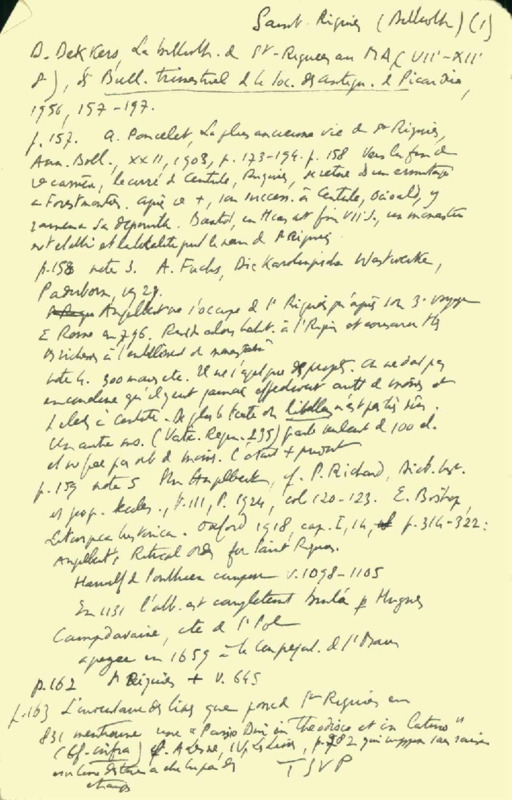 Saint-Riquier (Biblioth) (1)
D. Dekkers, La biblioth. d St-Riquier au MA (VIIe-XIIe
s), ds Bull. trimestriel d la Soc. des antiqu. d Picardie,
1956, 157-197.
p. 157. A. Poncelet, La plus ancienne vie de St Riquier,
Ann. Boll., XXII, 1903, p. 173-194. p. 158 Vers la fin de
sa carrière, le curé de Centule, Riquier, se retire ds un ermitage
à Forestmontier. Après sa +, son success. à Centule, Ocioald, y
ramena sa dépouille. Bientôt, en tt cas avt fin VIIe s., un monastère
est établi et la localité prit le nom de St Riquier
p. 158 note 3. A. Fuchs, Die Karolingische Westwerke,
Paderborn, 1929.
Angilbert ne s'occupe de St Riquier qu'après son 3e voyage
à Rome en 796. Resta alors habit. à St Riquier et consacra ttes
ses richesses à l'embellissement du monastère
note 4. 300 moines etc. Il ne s'agit que de projets. On ne doit pas
en conclure qu'il y eut jamais effectivement autt de moines et
d'élèves à Centule. De plus le texte du libellus n'est pas très sûr.
Un autre ms. (Vatic. Regin. 235) parle seulement de 100 él.
et ne précise pas nb de moines.
p. 159 note 5 Sur Angilbert, cf. P. Richard, Dict. hist.
et géog. Eccles., t. III, P. 1924, col 120-123. E. Bishop,
Liturgica historica. Oxford 1918, cap. I, 14, p. 314-322:
Angilbert's Ritual Order for Saint Riquier.
Hariulf d Ponthieu v. 1098-1105
En 1131 l'abb. est complètement brûlée p Hugues
Campdavaine, cte de St Pol
apogée en 1659 à la Congrégat. de St Maur
p. 162 St Riquier + v. 645
p. 163 L'inventaire des livres que possède St-Riquier en
831 mentionne une "Passio Dni in Theodisco et in Latino"
(Cf. infra) cf. A Lesne, IV, Les Livres, p. 782 qui suppose sans raison
TSVP